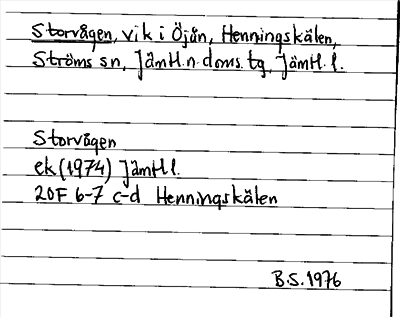 Storvågen, vik i Öjån, Henningskälen,
Ströms sn, Jämtl. n. doms. tg, Jämtl. l.
Storvågen
ek (1974) Jämtl l.
20F 6-7 c-d Henningskälen
B.S. 1976